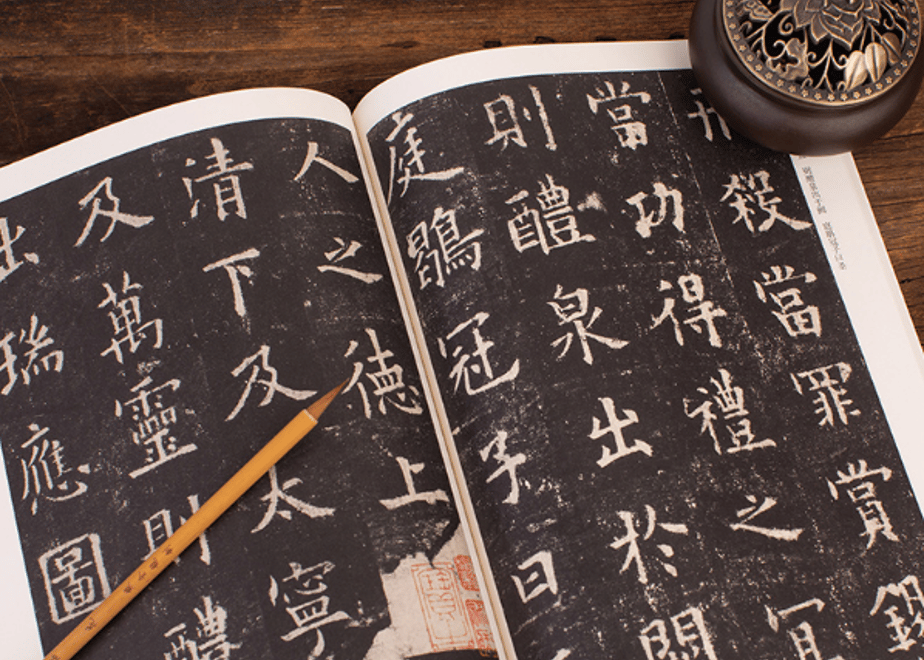 刑殺當罪賞錫
當功得禮之宜
則醴泉出於闕
庭鶡冠子曰
人之德上
清下及太寧
及萬靈則醴
出瑞應圖